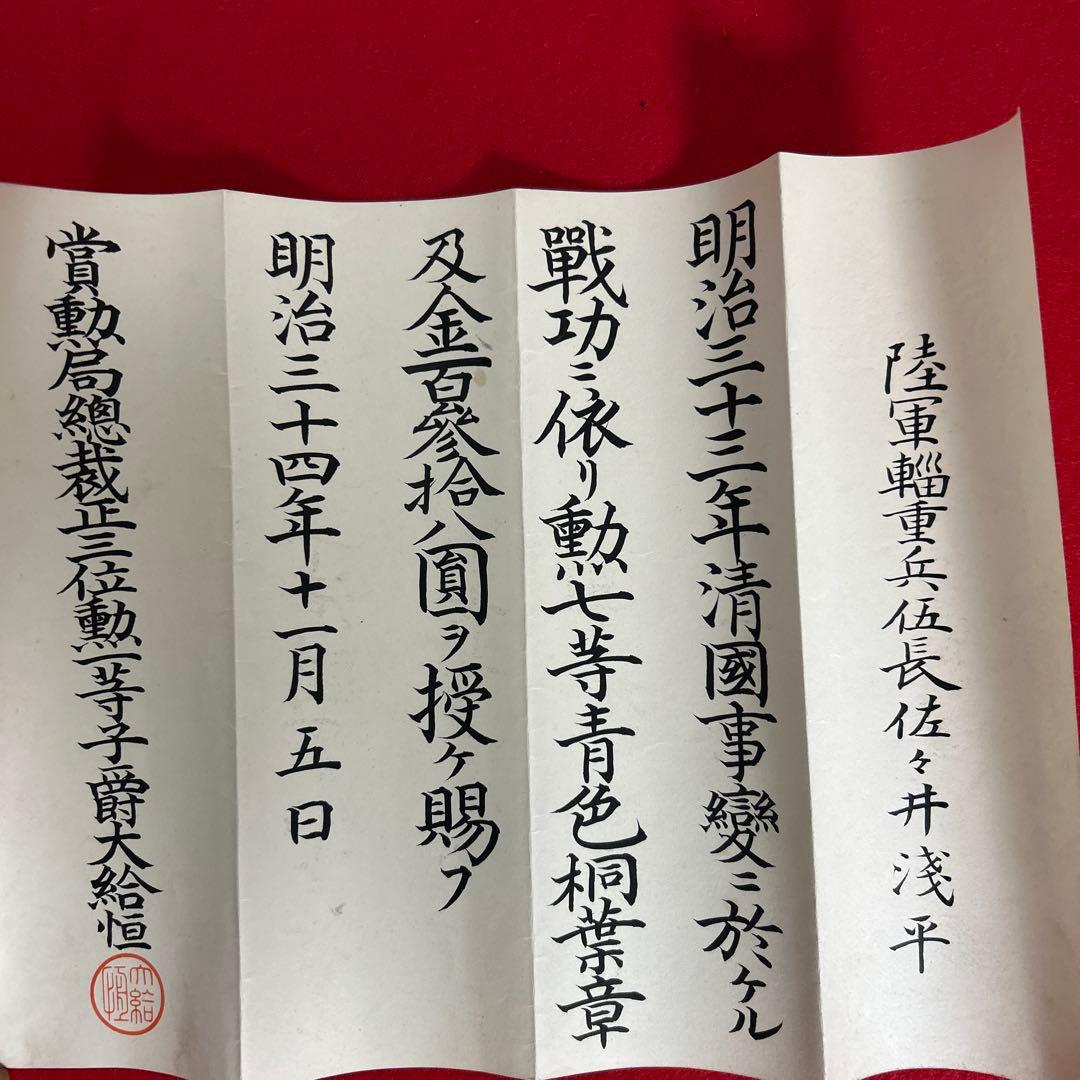 陸軍輜重兵伍長佐々井淺平
明治三十三年清國事變ニ於ケル
戰功ニ依リ勲七等青色桐葉章
及金百參拾八圓ヲ授ケ賜フ
明治三十四年十一月五日
賞勲局總裁正三位勲一等子爵大給恒
大給恒